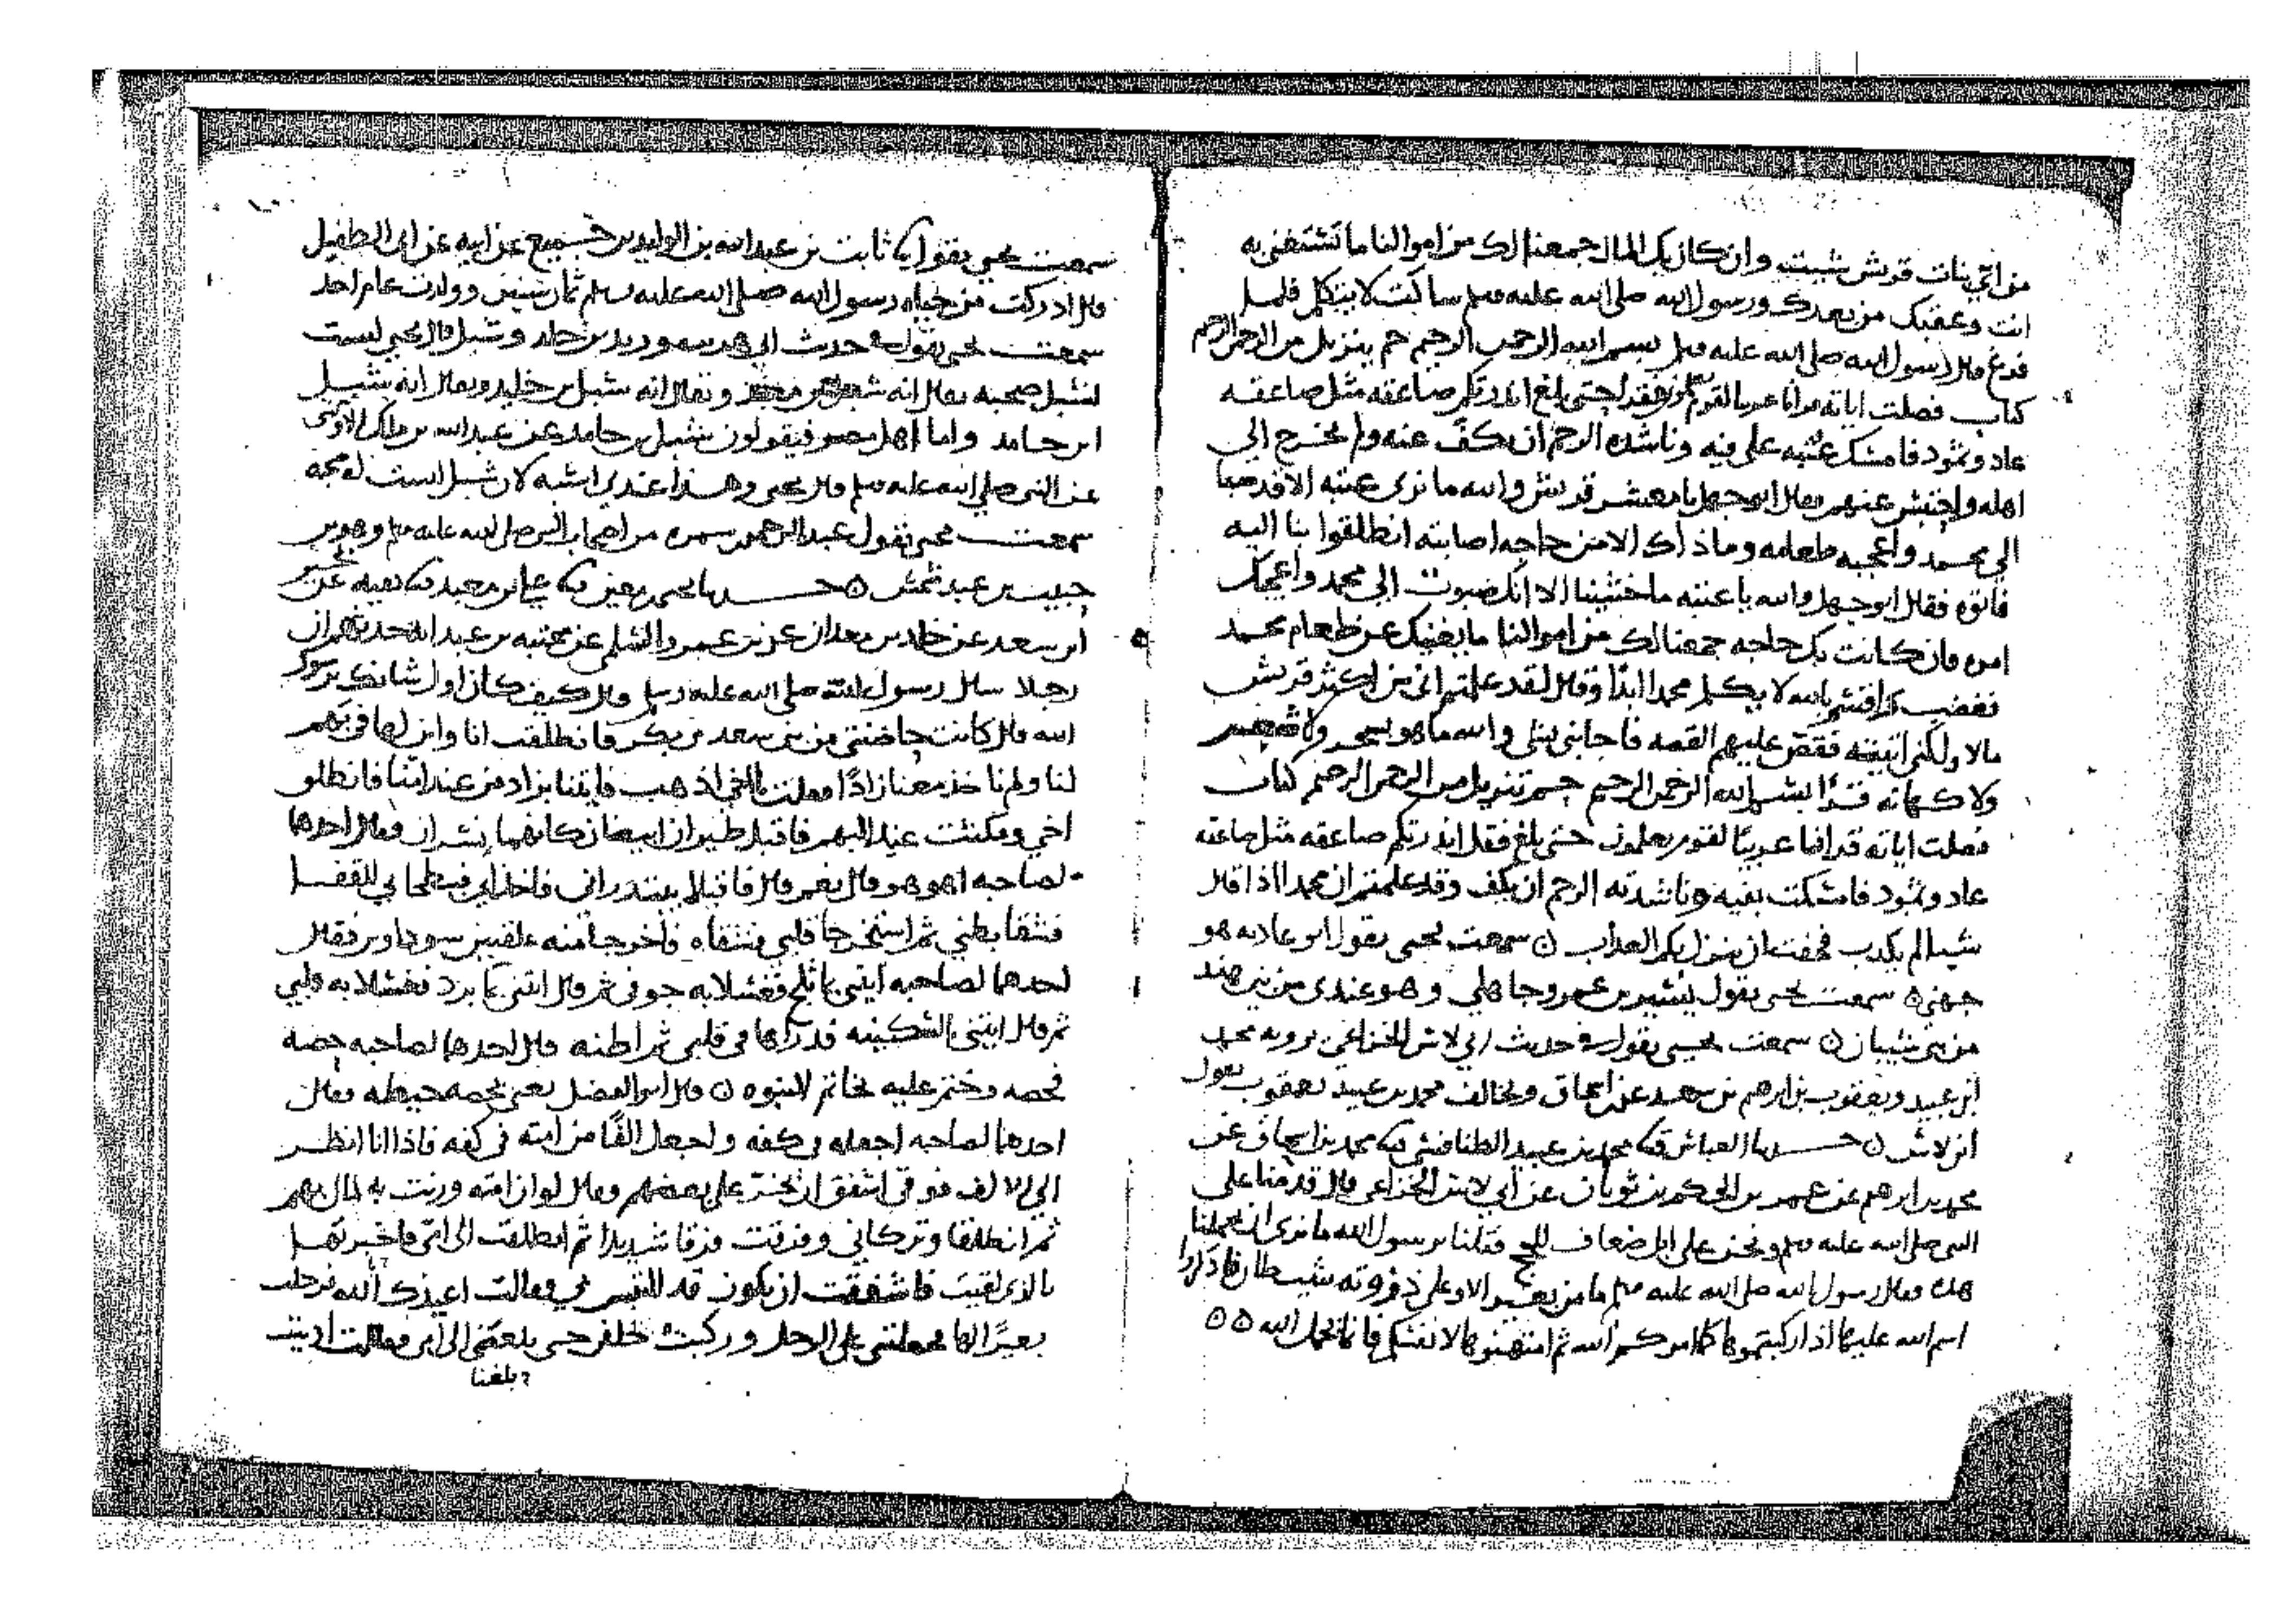 من اي بنات قريش شيت وان كان بك المال جمعنا لك من اموالنا ما تستغني به
انت وعقبك من بعدك ورسول الله صلى الله عليه وسلم ساكت لا يتكلم فلما
فرغ قال رسول الله صلى الله عليه وسلم بسم الله الرحمن الرحيم حم تنزيل من الرحمن الرحيم
كتاب فصلت اياته قرانا عربيا لقوم يعلمون فقرا حتى بلغ انذرتكم صاعقه مثل صاعقه
عاد وثمود فامسك عتبه على فيه وناشده الرحم ان يكف عنه ولم يخرج الى
اهله واحتبس عنهم فقال ابو جهل يا معشر قريش والله ما نرى عتبه الا قد صبا
الى محمد واعجبه طعامه وما ذاك الا من حاجه اصابته انطلقوا بنا اليه
فاتوه فقال ابو جهل والله يا عتبه ما خشينا الا انك صبوت الى محمد واعجبك
امره فان كانت بك حاجه جمعنا لك من اموالنا ما يغنيك عن طعام محمد
فغضب واقسم بالله لا يكلم محمدا ابدا وقال لقد علمتم اني من اكثر قريش
مالا ولكني اتيته فقص عليهم القصه فاجابني بشي والله ما هو بسحر ولا شعر
ولا كهانه قرا بسم الله الرحمن الرحيم حم تنزيل من الرحمن الرحيم كتاب
فصلت اياته قرانا عربيا لقوم يعلمون حتى بلغ فقل انذرتكم صاعقه مثل صاعقه
عاد وثمود فامسكت بفيه وناشدته الرحم ان يكف وقد علمتم ان محمدا اذا قال
شيا لم يكذب فخفت ان ينزل بكم العذاب ٥ سمعت يحيى يقول ابو عاديه هو
جهني ٥ سمعت يحيى يقول بشير بن عمرو جاهلي وهو عندي من بني هند
من بني شيبان ٥ سمعت يحيى يقول في حديث ابي لاس الخزاعي يرويه محمد
ابن عبيد ويعقوب بن ابرهيم بن سعد عن اسحاق ويخالف محمد بن عبيد يعقوب يقول
ابن لاس ٥ حدثنا العباس قثنا محمد بن عبيد الطنافسي قثنا محمد بن اسحاق عن
محمد بن ابرهيم عن عمر بن الحكم بن ثوبان عن ابي لاس الخزاعي قال قدمنا على
النبي صلى الله عليه وسلم ونحن على ابل ضعاف للحج فقلنا يرسول الله ما نرى ان تحملنا
هذه فقال رسول الله صلى الله عليه وسلم ما من بعير الا وعلى ذروته شيطان فاذكروا
اسم الله عليها اذا ركبتموها كما امركم الله ثم امتهنوها لانفسكم فانما يحمل الله ٥ ٥
سمعت يحيى يقول ثابت بن عبد الله بن الوليد بن جميع عن ابيه عن ابي الطفيل
قال ادركت من حياه رسول الله صلى الله عليه وسلم ثمان سنين وولدت عام احد
سمعت يحيى يقول في حديث ابي هريره وزيد بن خالد وشبل قال يحيى ليست
لشبل صحبه يقال انه شبل بن معبد ويقال انه شبل بن خليد ويقال انه شبل
ابن حامد واما اهل مصر فيقولون شبل بن حامد عن عبد الله بن مالك الاوسي
عن النبي صلى الله عليه وسلم قال يحيى وهذا عندي اشبه لان شبل ليست له صحبه
سمعت يحيى يقول عبد الرحمن بن سمره من اصحاب النبي صلى الله عليه وسلم وهو بن
حبيب بن عبد شمس ٥ حدثنا يحيى بن معين قثنا علي بن معبد قثنا بقيه عن بحير
ابن سعد عن خالد بن معدان عن بن عمرو السلمي عن عتبه بن عبد انه حدثهم ان
رجلا سال رسول الله صلى الله عليه وسلم قال كيف كان اول شانك يرسول
الله قال كانت حاضنتي من بني سعد بن بكر فانطلقت انا وابن لها في بهم
لنا ولم ناخذ معنا زادا فقلت يا اخي اذهب فايتنا بزاد من عند امنا فانطلق
اخي ومكثت عند البهم فاقبل طيران ابيضان كانهما نسران فقال احدهما
لصاحبه اهو هو قال نعم قال فاقبلا يبتدراني فاخذاني فبطحاني للقفا
فشقا بطني ثم استخرجا قلبي فشقاه فاخرجا منه علقتين سوداوين فقال
احدهما لصاحبه ايتني بما ثلج فغسلا به جوفي ثم قال ايتني بما برد فغسلا به قلبي
ثم قال ايتني بالسكينه فذراها في قلبي ثم اطنه قال احدهما لصاحبه حصه
فحصه وختم عليه بخاتم النبوه ٥ قال ابو الفضل يعني بحصه خيطه فقال
احدهما لصاحبه اجعله في كفه واجعل الفا من امته في كفه فاذا انا انظر
الى الالف فوقي اشفق ان يخر علي بعضهم فقال لو ان امته وزنت به لمال بهم
ثم انطلقا وتركاني وفرقت فرقا شديدا ثم انطلقت الى امي فاخبرتها
بالذي لقيت فاشفقت ان يكون قد التبس بي فقالت اعيذك بالله فرحلت
بعيرا لها فحملتني على الرحل وركبت خلفي حتى بلغتني الى امي فقالت اديت
بلغنا